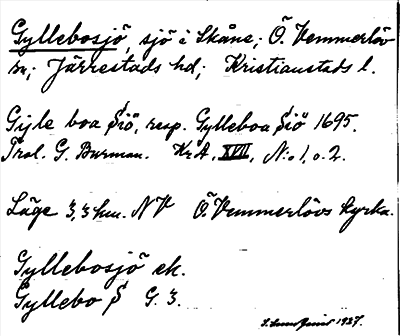 Gyllebosjö, sjö i Skåne; Ö. Vemmerlöv
sn; Järrestads hd; Kristianstads l.
Gijle boa Siö, resp. Gylleboa Siö 1695.
G. Burman. KrA XVII, N:o 1, o. 2.
Läge 3,3 km. NV Ö. Vemmerlövs kyrka.
Gyllebosjö ek.
Gyllebo S G. 3.
1927.